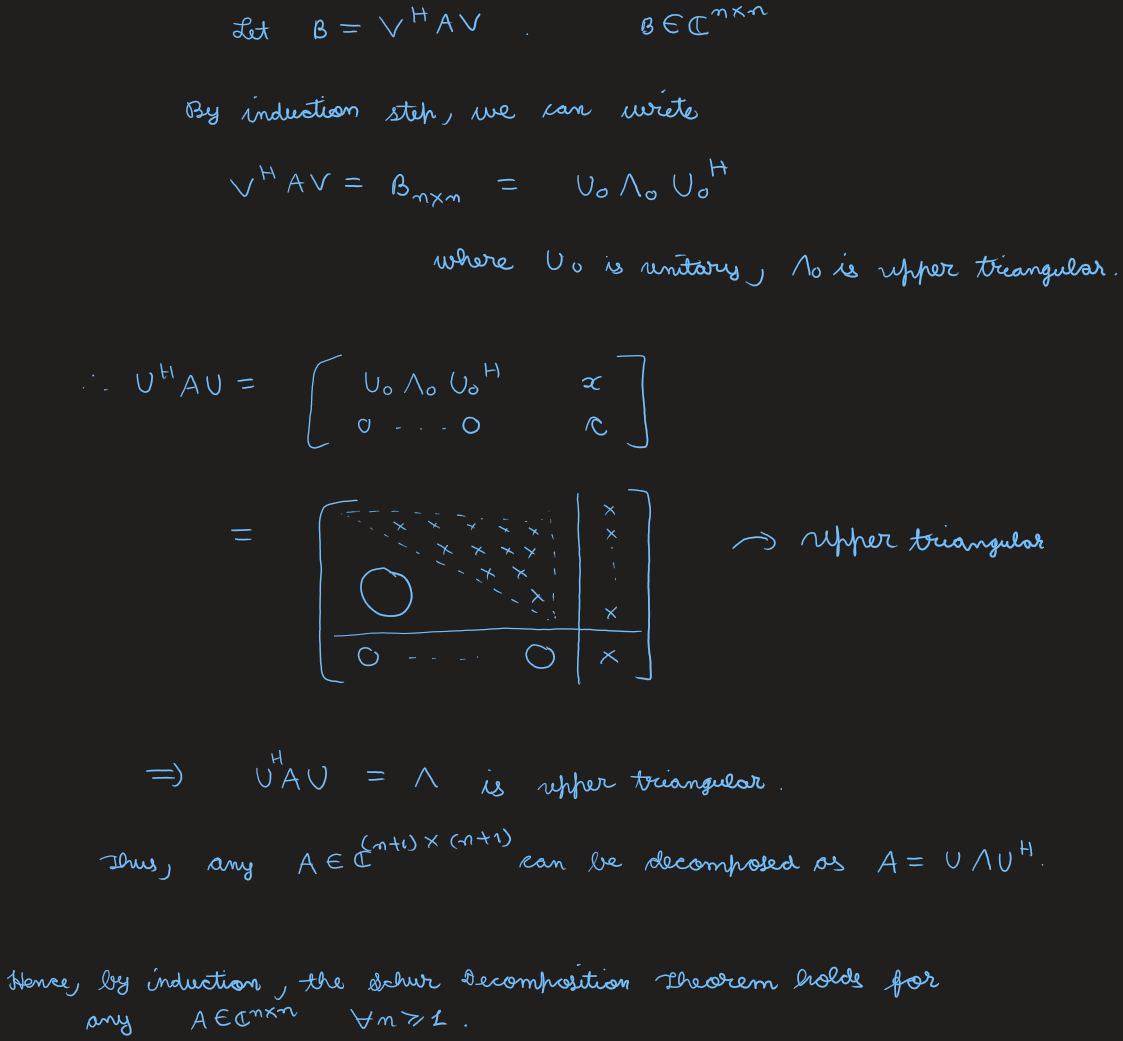 Let B = V^H A V . B ∈ ℂ^{n×n}
By induction step, we can write
V^H A V = B_{n×n} = U_0 Λ_0 U_0^H
where U_0 is unitary, Λ_0 is upper triangular.
∴ U^H A U = [ U_0 Λ_0 U_0^H x
0 . . . 0 r ]
= [ × × × × × | ×
× × × × | ×
× × | :
O × | ×
0 - - - - 0 | × ] → Upper triangular
⇒ U^H A U = Λ is upper triangular .
Thus, any A ∈ ℂ^{(n+1)×(n+1)} can be decomposed as A = U Λ U^H.
Hence, by induction, the Schur Decomposition Theorem holds for
any A ∈ ℂ^{n×n} ∀ n ⩾ 1 .